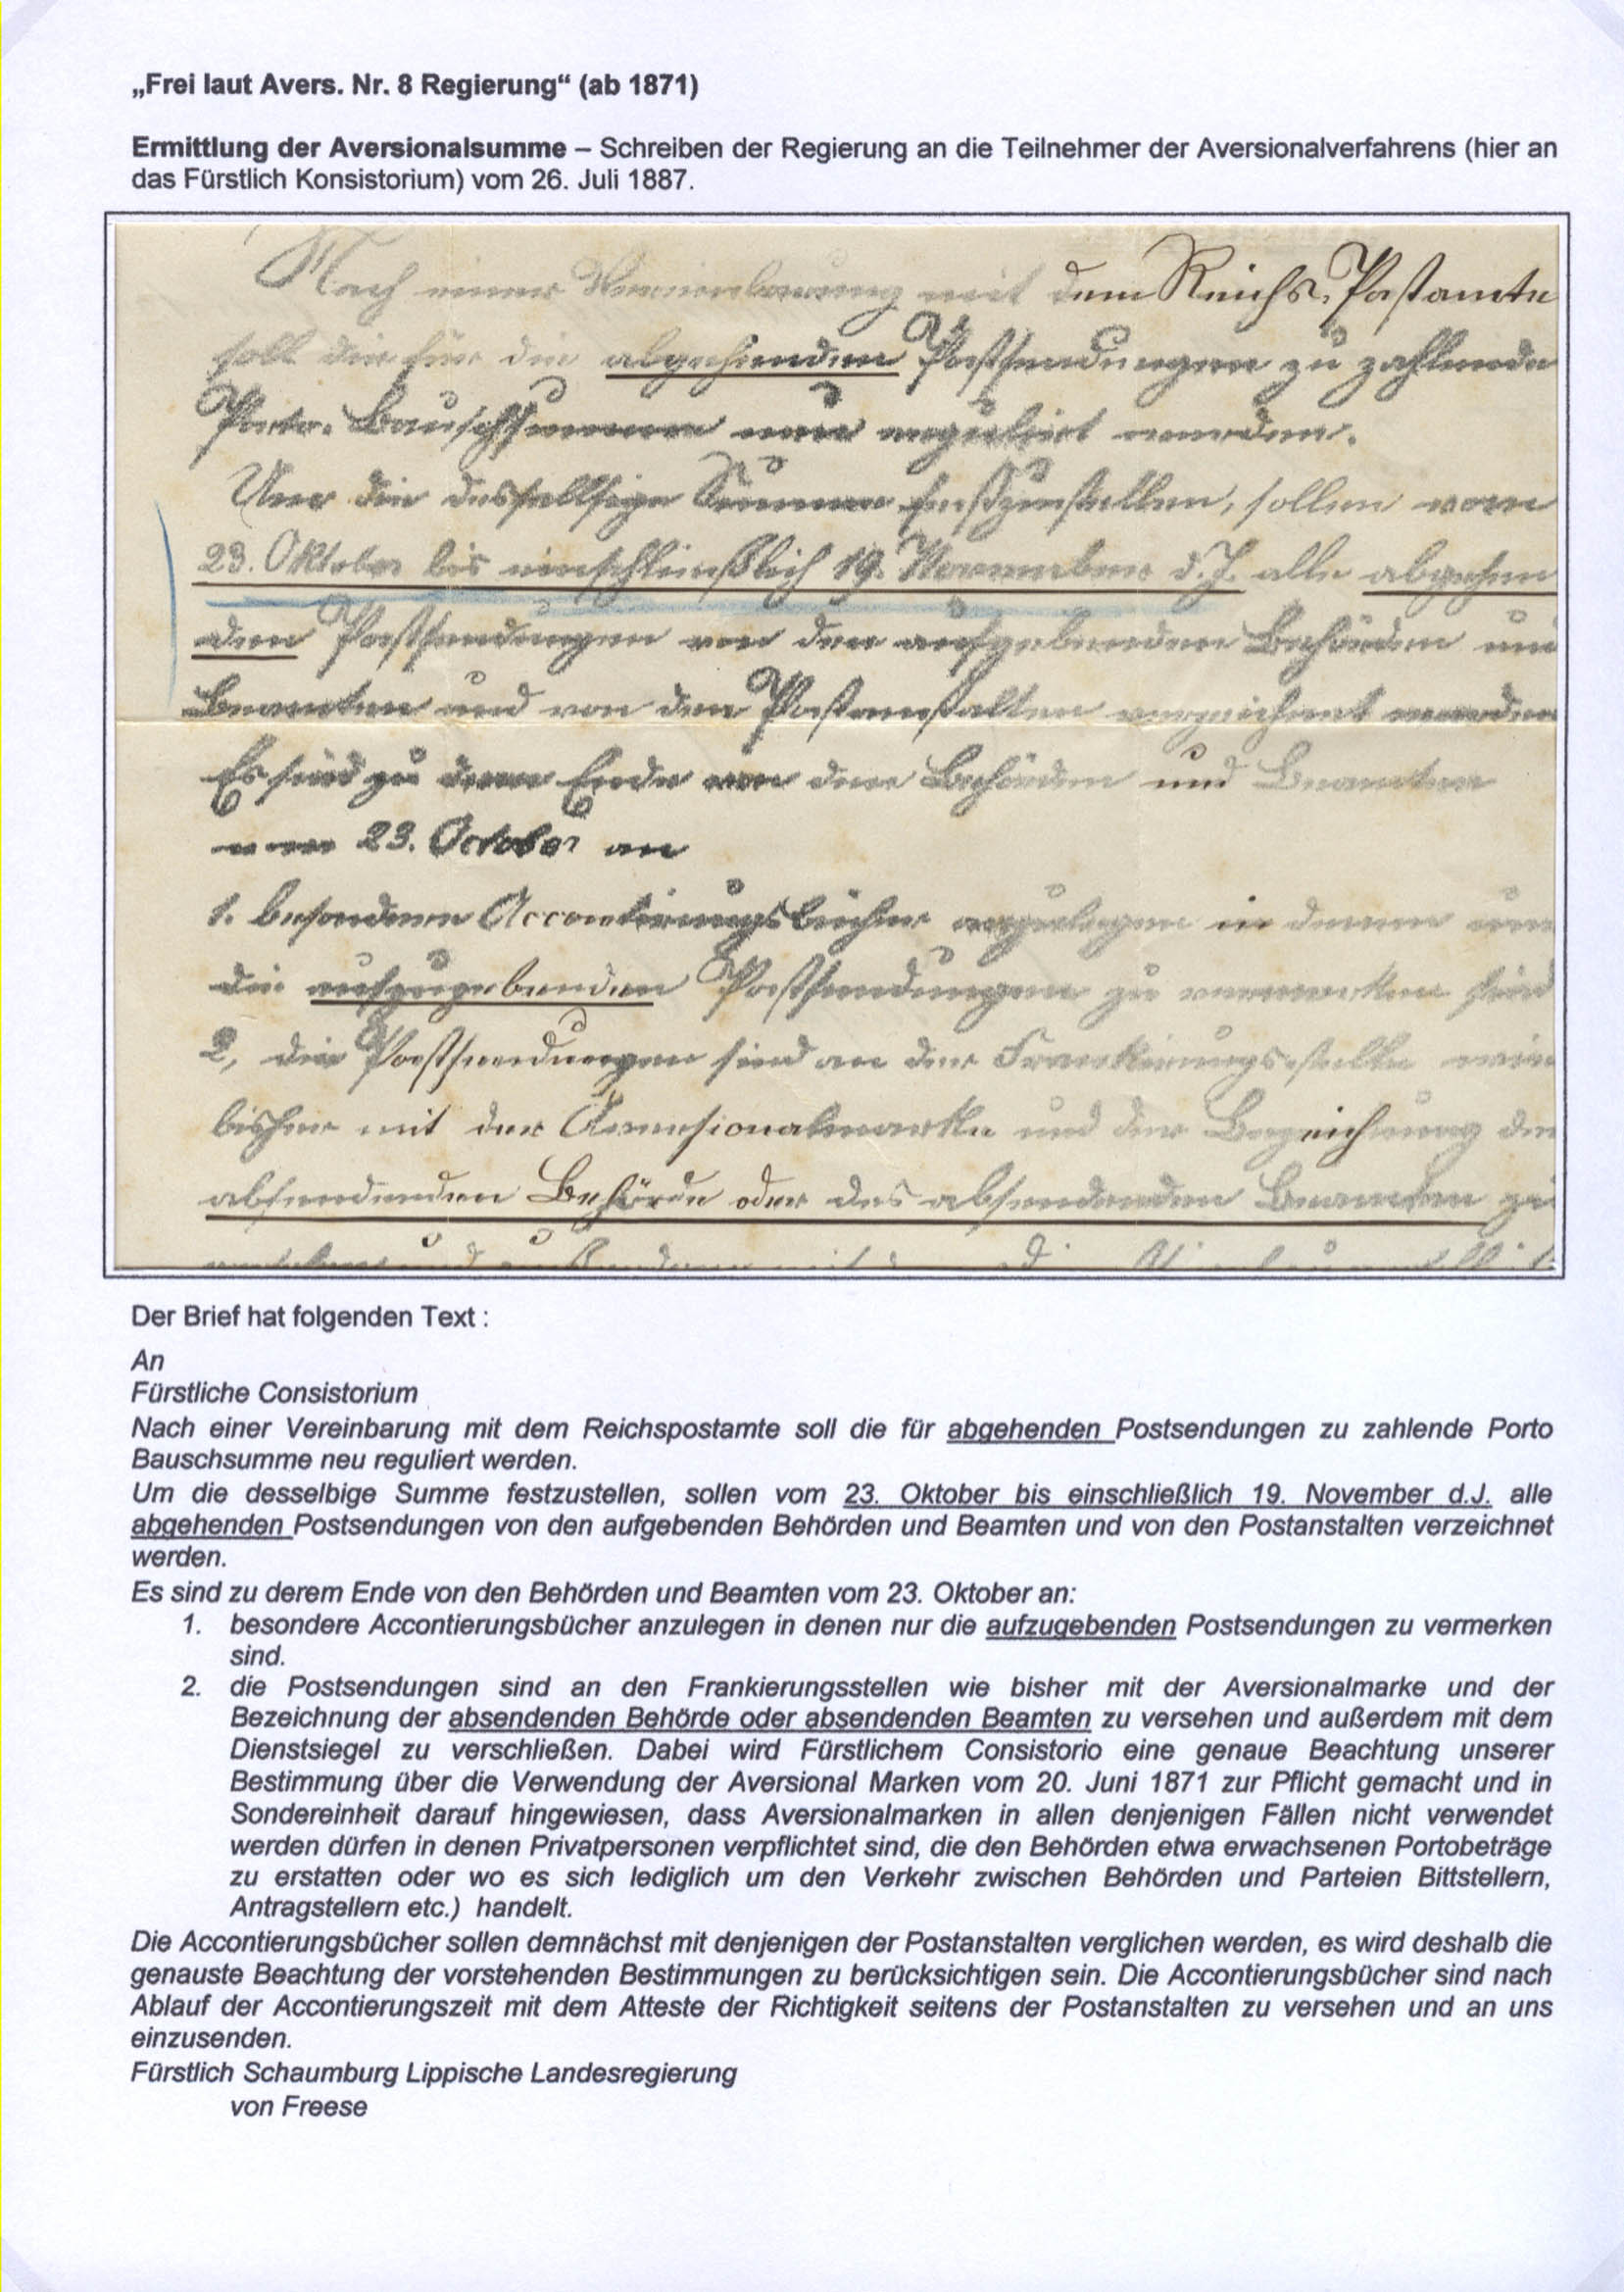 „Frei laut Avers. Nr. 8 Regierung“ (ab 1871)
Ermittlung der Aversionalsumme – Schreiben der Regierung an die Teilnehmer der Aversionalverfahrens (hier an
das Fürstlich Konsistorium) vom 26. Juli 1887.
Nach einer Vereinbarung mit dem Reichs-Postamte
soll die für die abgehenden Postsendungen zu zahlende
Porto-Bauschsumme neu regulirt werden.
Um die desfallsige Summe festzustellen, sollen vom
23. Oktober bis einschließlich 19. November d. J. alle abgehen
den Postsendungen von den aufgebenden Behörden und
Beamten und von den Postanstalten verzeichnet werden
Es sind zu dem Ende von den Behörden und Beamten
vom 23. October an
1. besondere Accontirungsbücher anzulegen in denen nur
die aufzugebenden Postsendungen zu vermerken sind
2, die Postsendungen sind an der Frankirungsstelle wie
bisher mit der Aversionalmarke und der Bezeichnung der
absendenden Behörde oder des absendenden Beamten zu
Der Brief hat folgenden Text :
An
Fürstliche Consistorium
Nach einer Vereinbarung mit dem Reichspostamte soll die für abgehenden Postsendungen zu zahlende Porto
Bauschsumme neu reguliert werden.
Um die desselbige Summe festzustellen, sollen vom 23. Oktober bis einschließlich 19. November d.J. alle
abgehenden Postsendungen von den aufgebenden Behörden und Beamten und von den Postanstalten verzeichnet
werden.
Es sind zu derem Ende von den Behörden und Beamten vom 23. Oktober an:
1. besondere Accontierungsbücher anzulegen in denen nur die aufzugebenden Postsendungen zu vermerken
sind.
2. die Postsendungen sind an den Frankierungsstellen wie bisher mit der Aversionalmarke und der
Bezeichnung der absendenden Behörde oder absendenden Beamten zu versehen und außerdem mit dem
Dienstsiegel zu verschließen. Dabei wird Fürstlichem Consistorio eine genaue Beachtung unserer
Bestimmung über die Verwendung der Aversional Marken vom 20. Juni 1871 zur Pflicht gemacht und in
Sondereinheit darauf hingewiesen, dass Aversionalmarken in allen denjenigen Fällen nicht verwendet
werden dürfen in denen Privatpersonen verpflichtet sind, die den Behörden etwa erwachsenen Portobeträge
zu erstatten oder wo es sich lediglich um den Verkehr zwischen Behörden und Parteien Bittstellern,
Antragstellern etc.) handelt.
Die Accontierungsbücher sollen demnächst mit denjenigen der Postanstalten verglichen werden, es wird deshalb die
genauste Beachtung der vorstehenden Bestimmungen zu berücksichtigen sein. Die Accontierungsbücher sind nach
Ablauf der Accontierungszeit mit dem Atteste der Richtigkeit seitens der Postanstalten zu versehen und an uns
einzusenden.
Fürstlich Schaumburg Lippische Landesregierung
von Freese